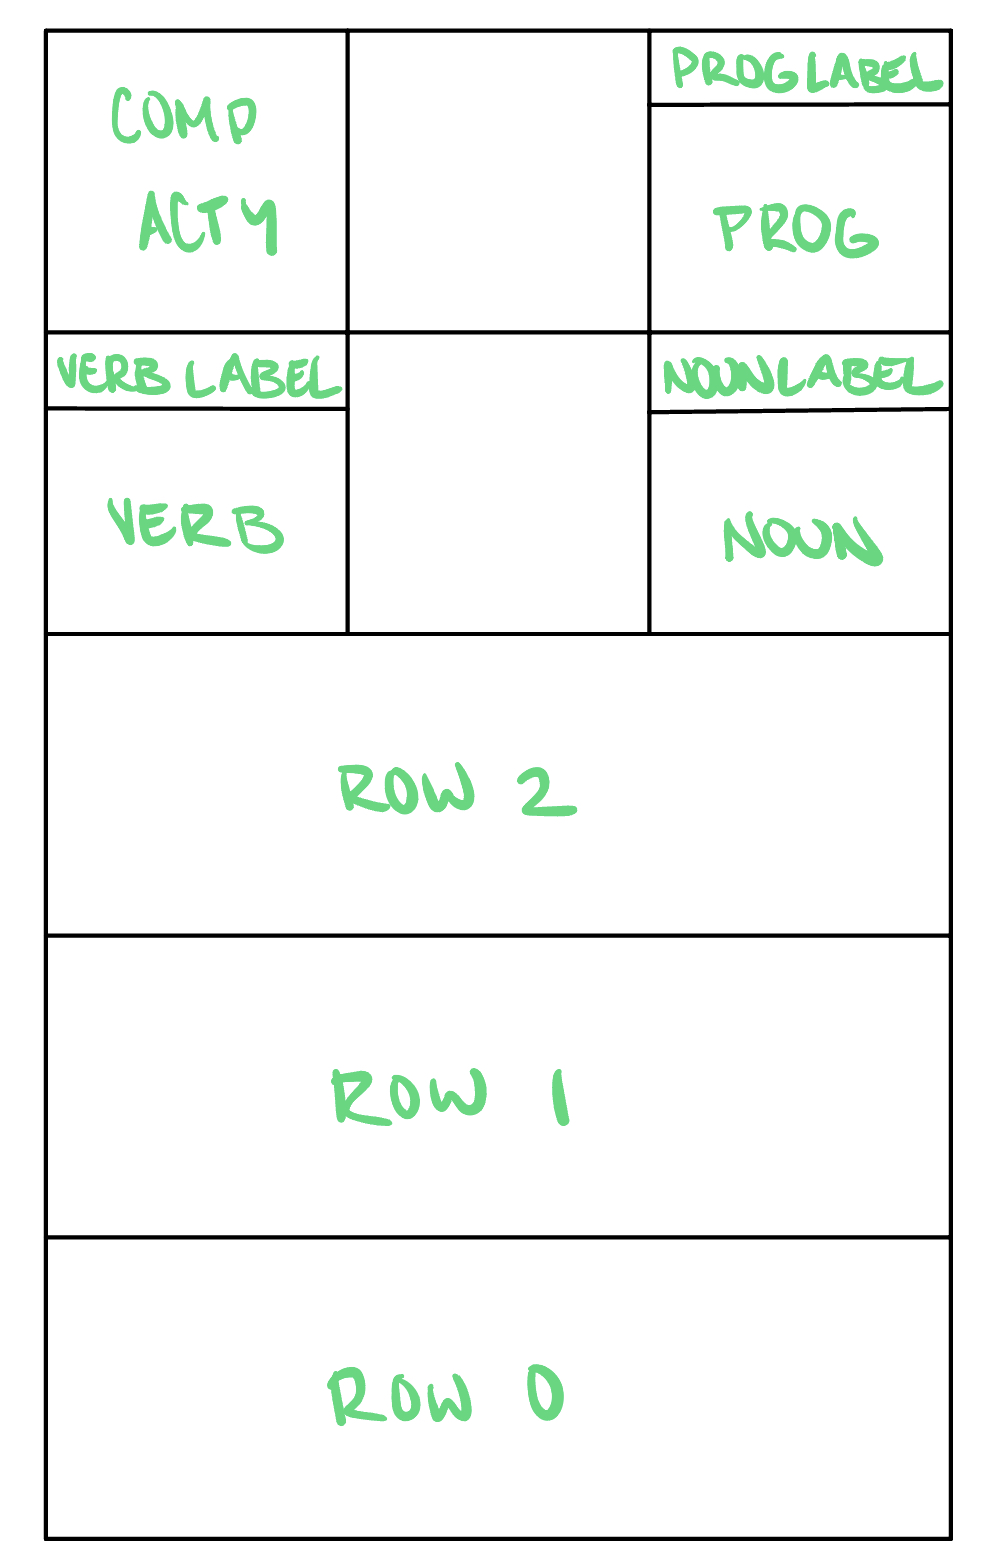 COMP
ACTY
PROG LABEL
PROG
VERB LABEL
NOUN LABEL
VERB
NOUN
ROW 2
ROW 1
ROW 0